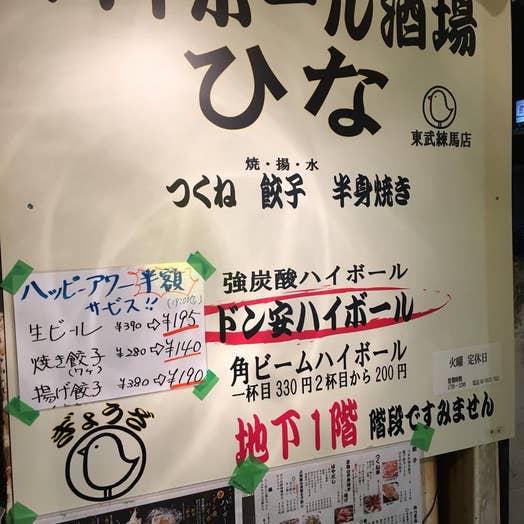 ハイボール酒場
ひな
東武練馬店
焼・揚・水
つくね 餃子 半身焼き
ハッピーアワー 半額
サービス!!
生ビール ¥390⇨¥195
焼き餃子 ¥280⇨¥140
揚げ餃子 ¥380⇨¥190
強炭酸ハイボール
ドン安ハイボール
角ビームハイボール
一杯目330円2杯目から200円
火曜 定休日
ぎょうざ
地下1階 階段ですみません